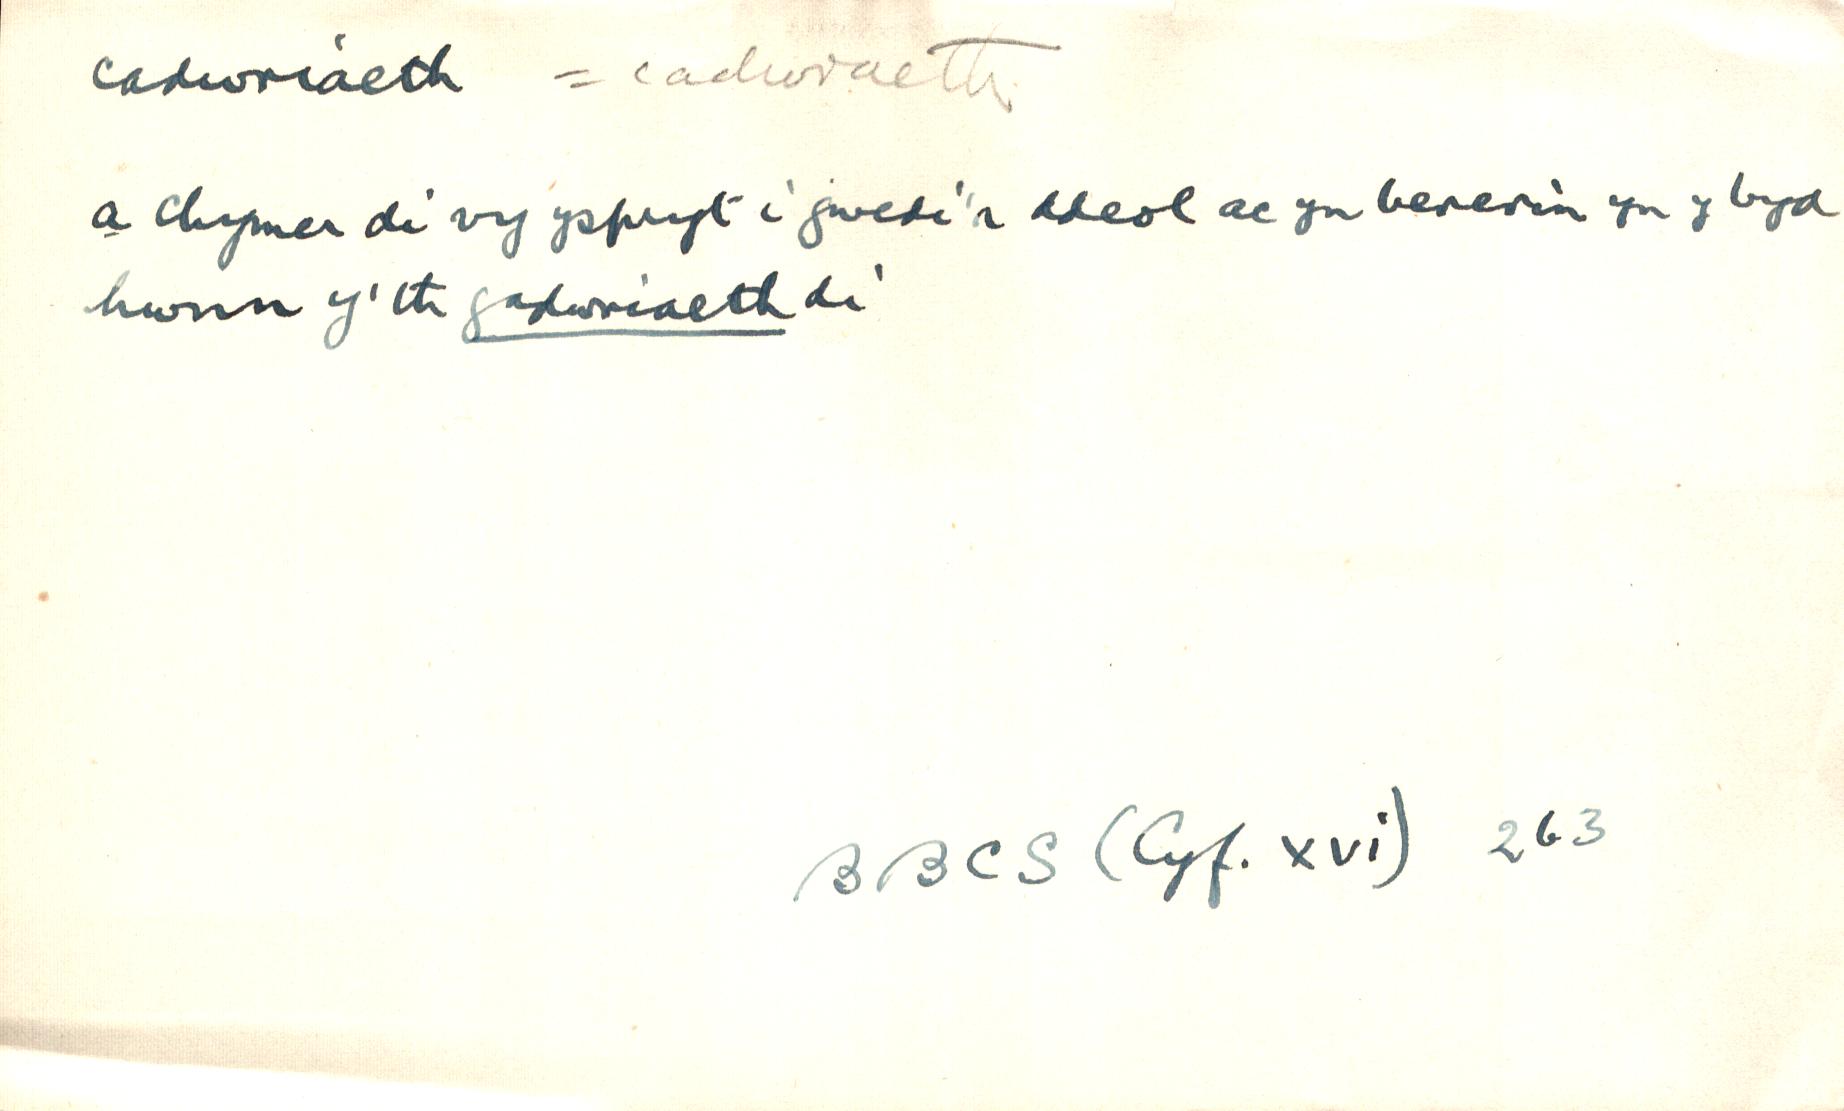 cadwriaeth = cadwraeth
a chymer di vy yspryt i gwedi'r ddeol ac yn bererin yn y byd
hwnn y'th gadwriaeth di
BBCS (Cyf. xvi) 263